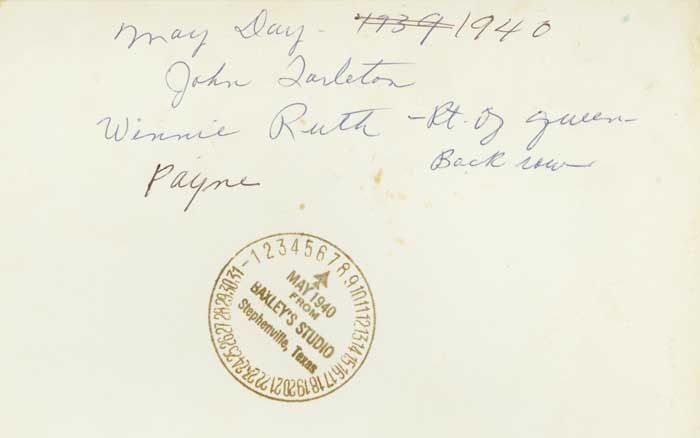 May Day - 1939 1940
John Tarleton
Winnie Ruth - Rt. of queen -
Back row
Payne
- 1 2 3 4 5 6 7 8 9 10 11 12 13 14 15 16 17 18 19 20 21 22 23 24 25 26 27 28 29 30 31
MAY 1940
FROM
BAXLEY'S STUDIO
Stephenville, Texas